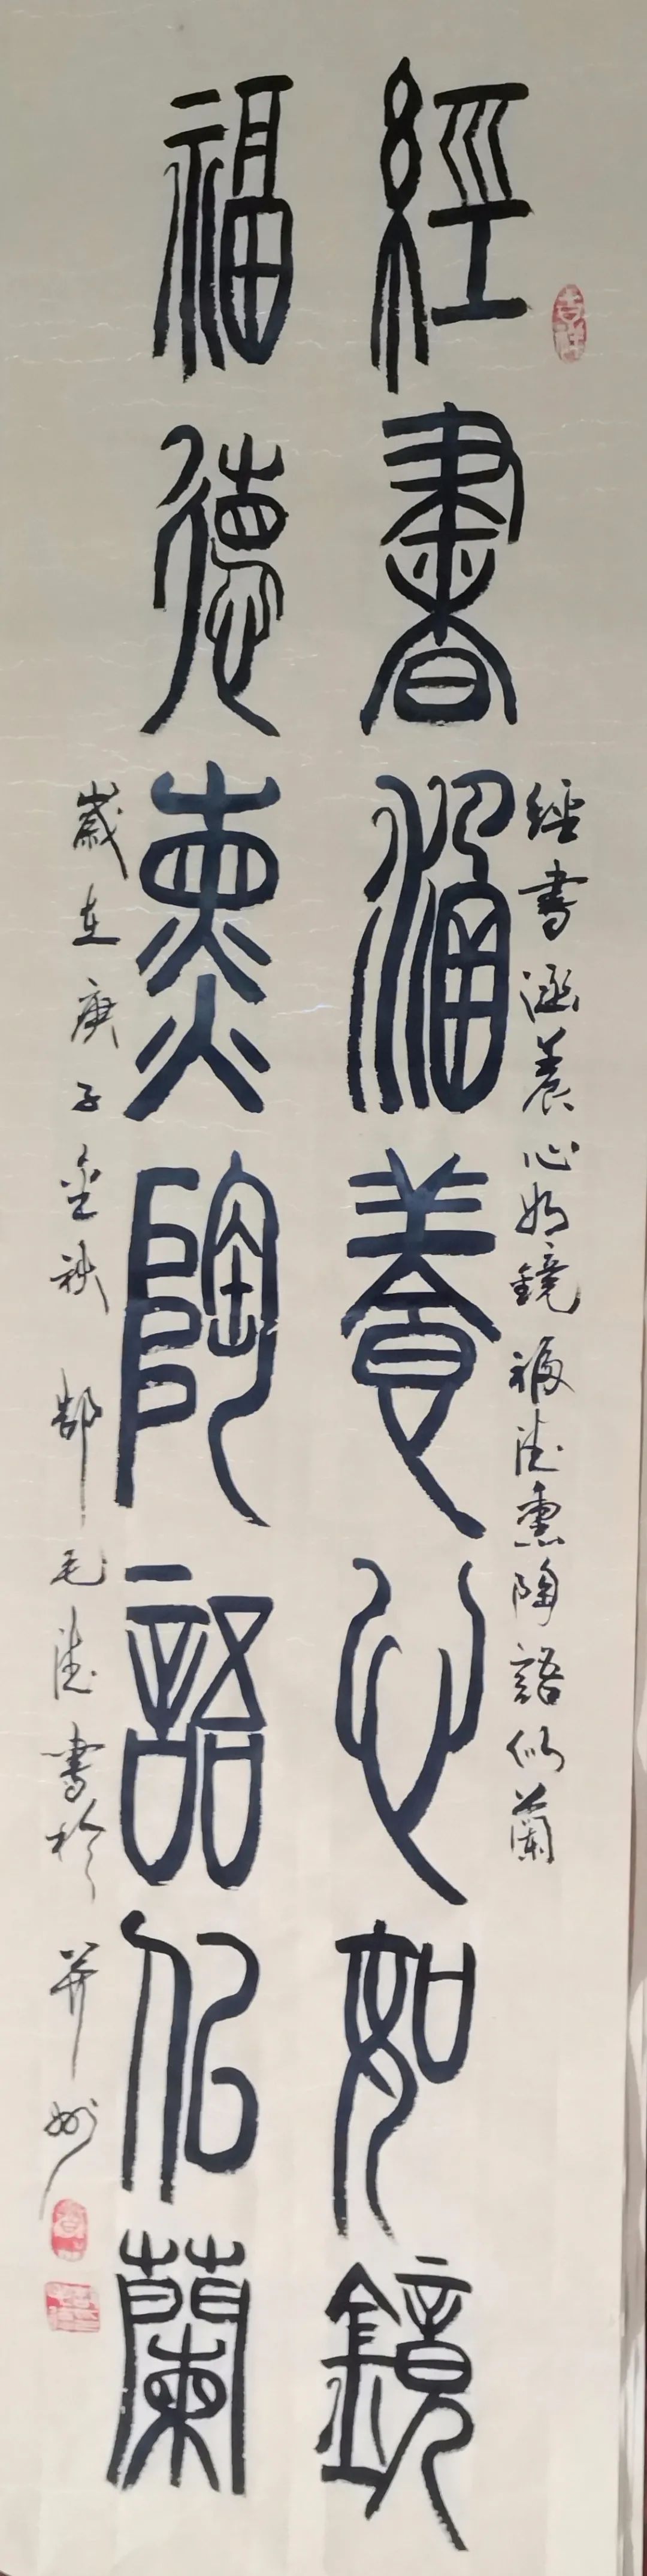 經書涵養心如鏡
福德熏陶語似蘭
經書涵養心如鏡 福德熏陶語似蘭
歲在庚子金秋 郜毛德書於并州
吉祥